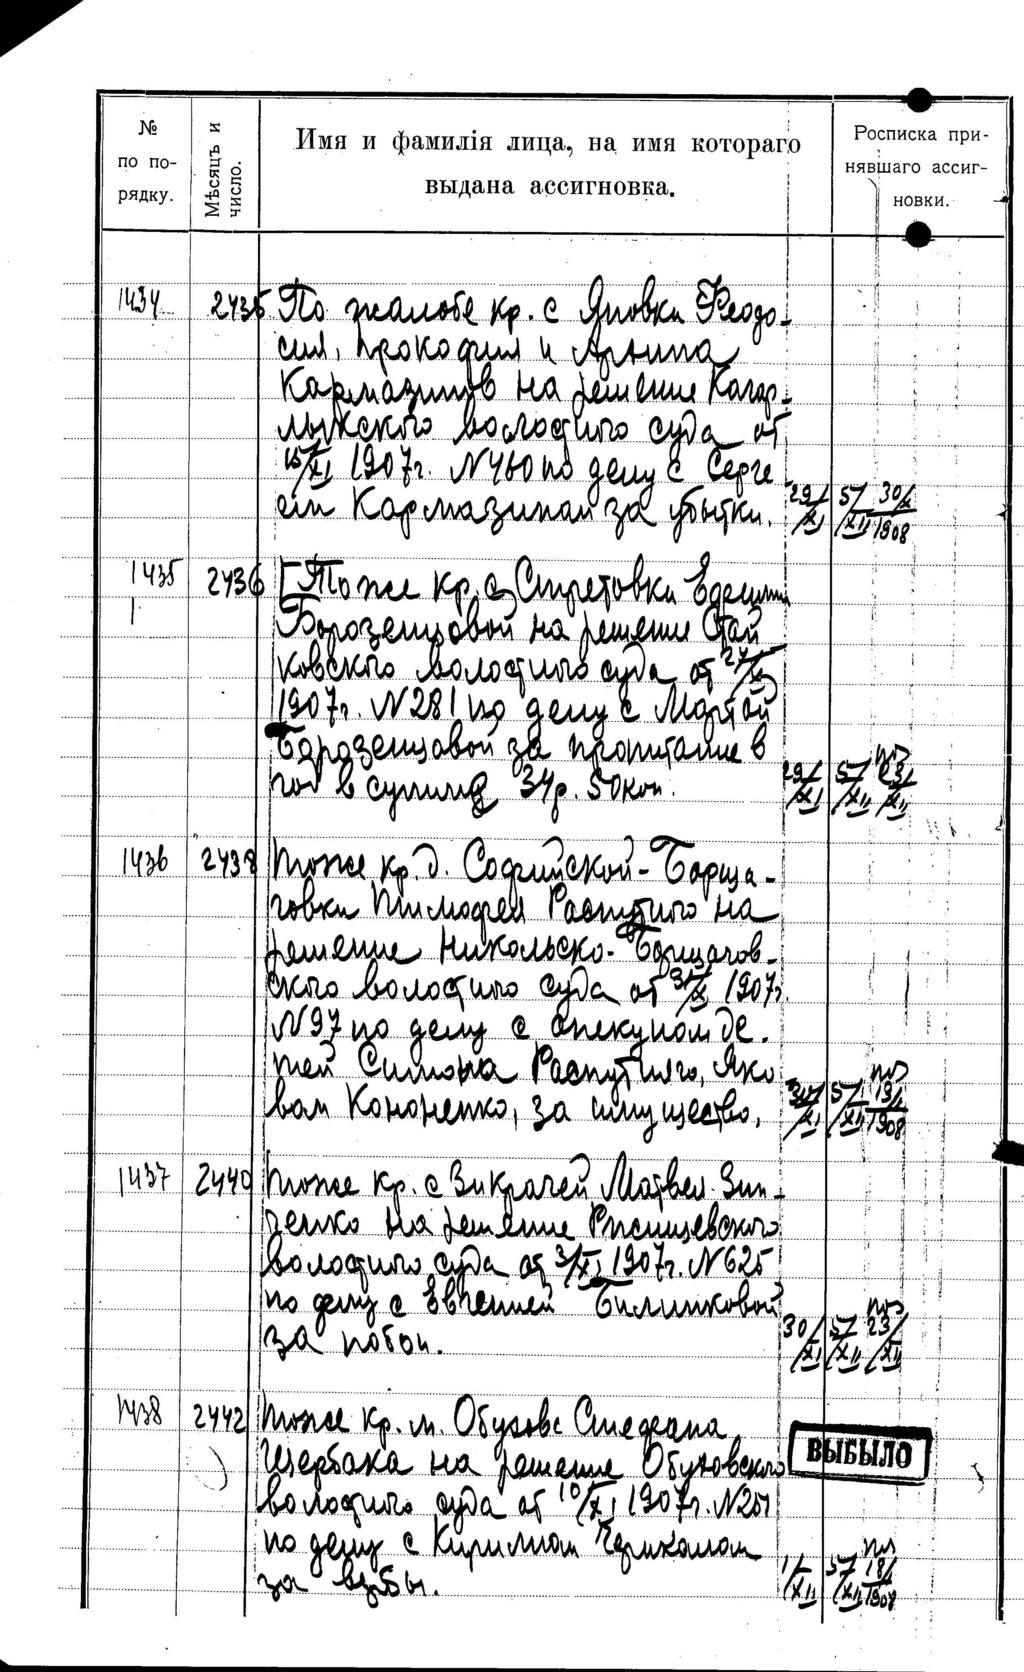 № по порядку.
Мѣсяцъ и число.
Имя и фамилія лица, на имя котораго
выдана ассигновка.
Росписка при-
нявшаго ассиг-
новки.
1434 2435 По жалобе кр. с Яновки Феодо-
сия, Прокофия и Архипа
Кармазинов на решение Кагар-
лыкского волостного суда от
15/XI 1907г. N460 по делу с Серге
ем Кармазиным за убытки. 29/XI 5/XII 30/X 1908
1435 2436 То же кр. с Стретовки
на решение Стай
ковского волостного суда от 27/X
1907г. N281 по делу с Мартой
Борозенцовой за пропитание в
год в сумме 34р. 50коп. 29/XI 5/XII 23/XII
1436 2438 Тоже кр. д. Софийской-Борща-
говки Тимофея Распутнего на
решение Никольско-Борщагов-
ского волостного суда от 31/X 1907г.
N97 по делу с опекуном де-
тей Симона Распутнего, Яко
вом Кононенко, за имущество. 30/XI 5/XII 19/I 1908
1437 2440 Тоже кр. с Викрачей Матвея Зин-
ченко на решение Ржищевского
волостного суда от 3/XI 1907г. N625
по делу с Евгенией Билинковой
за побои. 30/XI 5/XII 23/XII
1438 2442 Тоже кр. м. Обухова Стефана
Щербака на решение Обуховского
волостного суда от 10/XI 1907г. N251
по делу с Кирилом
за 1/XII 5/XII 18/I 1908
ВЫБЫЛО